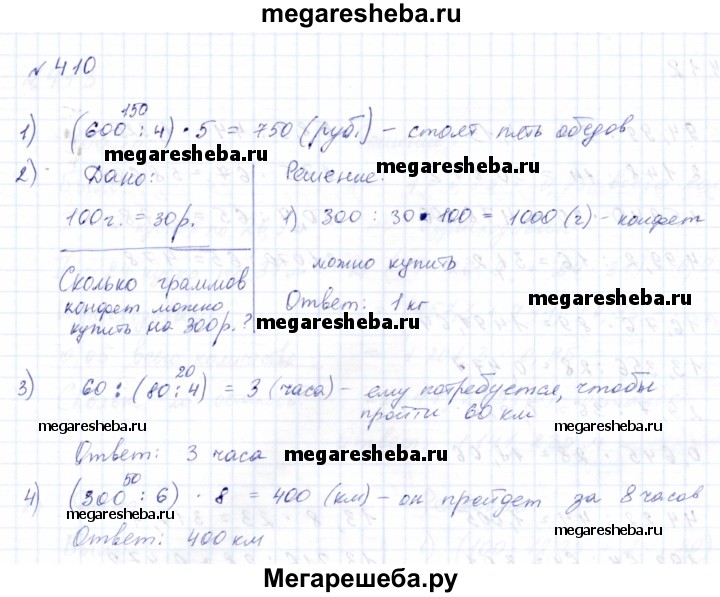 megaresheba.ru
№ 410
150
1) (600 : 4) · 5 = 750 (руб.) – стоят пять обедов
megaresheba.ru
megaresheba.ru
2) Дано:
100 г. = 30 р.
Сколько граммов
конфет можно
купить на 300 р.?
Решение:
1) 300 : 30 · 100 = 1000 (г) – конфет
можно купить
Ответ: 1 кг
megaresheba.ru
megaresheba.ru
20
3) 60 : (80 : 4) = 3 (часа) – ему потребуется, чтобы
пройти 60 км
megaresheba.ru
megaresheba.ru
Ответ: 3 часа
megaresheba.ru
50
4) (300 : 6) · 8 = 400 (км) – он пройдет за 8 часов
megaresheba.ru
megaresheba.ru
Ответ: 400 км
Мегарешеба.ру